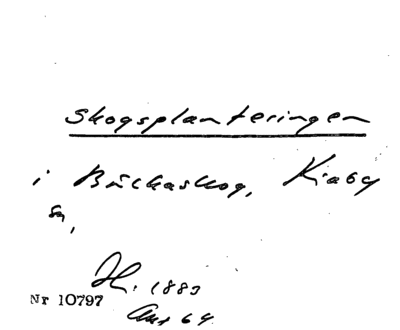 Skogsplanteringen
i Bäckaskog, Kiaby
sn,
H. 1883
Nr 10797